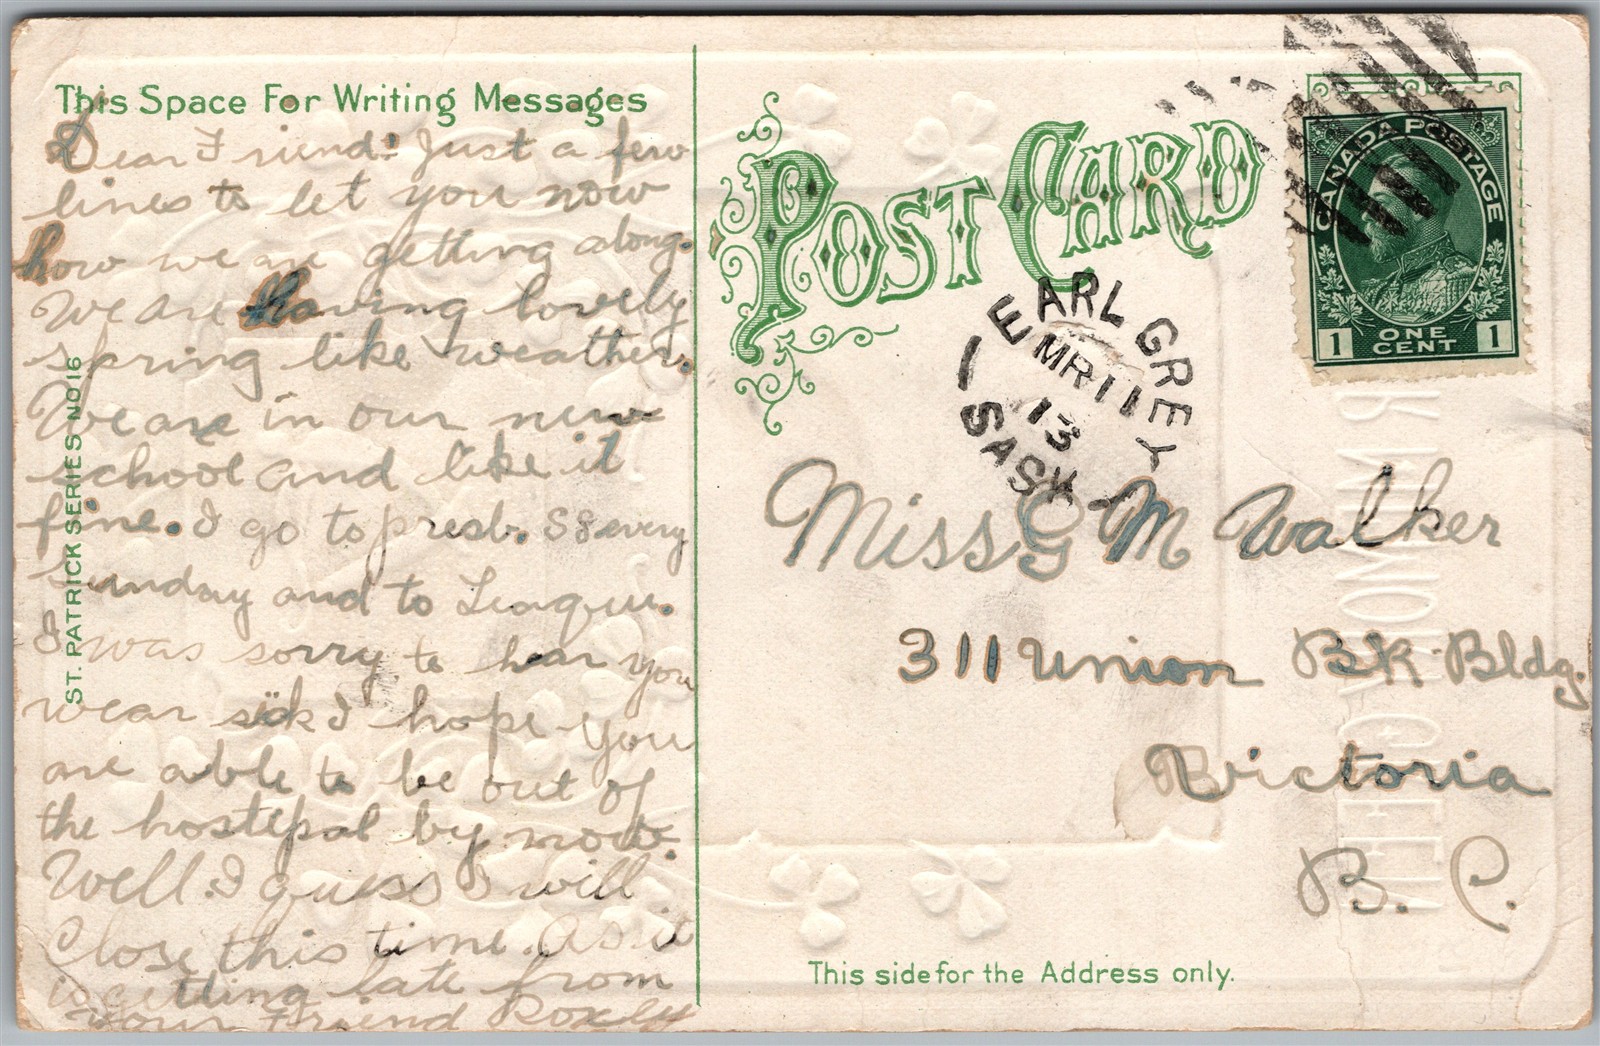 This Space For Writing Messages
Dear Friend! Just a few
lines to let you now
how we are getting along.
We are having lovely
spring like weather.
We are in our new
school and like it
fine. I go to presb. SS every
sunday and to Leaque.
I was sorry to hear you
wear sick I hope you
are able to be out of
the hostepal by now.
Well. I guess I will
Close this time. As it
is getting late from
your Friend
ST. PATRICK SERIES NO 16
POST CARD
CANADA POSTAGE
1 ONE CENT 1
EARL GREY
MR 11
13
SASK
Miss G M Walker
311 Union BK Bldg.
Victoria
B. C.
This side for the Address only.